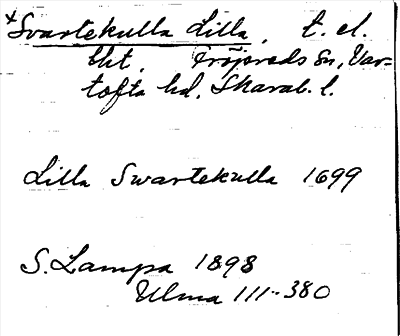 ×Svartekulla Lilla, t. el.
lht, Fröjereds Sn, Var-
tofta hd, Skarab. l.
Lilla Swartekulla 1699
S. Lampa 1898
Ulma 111:380